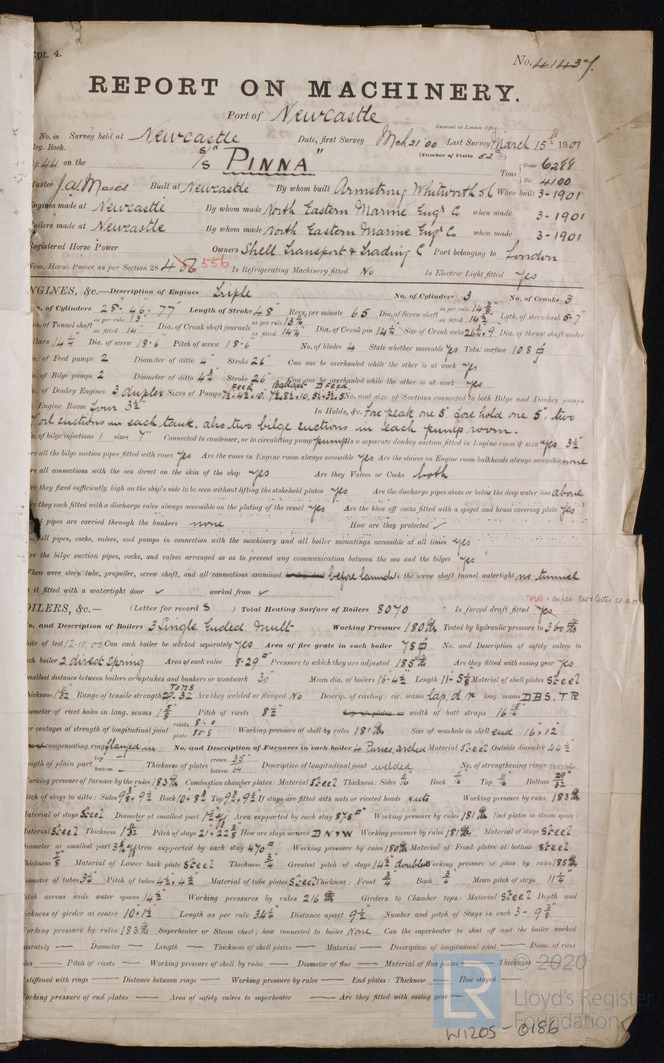 Rpt. 4.
No. 41437.
REPORT ON MACHINERY.
Port of Newcastle
Received at London Office
No. in Survey held at Newcastle Date, first Survey Mch 21 '00 Last Survey March 15th 1901
Reg. Book.
(Number of Visits 52)
44 on the S/S "PINNA" Tons Gross 6288
Net 4100
Master J. A. Moses Built at Newcastle By whom built Armstrong Whitworth & Co When built 3-1901
Engines made at Newcastle By whom made North Eastern Marine Engr Co when made 3-1901
Boilers made at Newcastle By whom made North Eastern Marine Engr Co when made 3-1901
Registered Horse Power Owners Shell Transport & Trading Co Port belonging to London
Nom. Horse Power as per Section 28 486 556 Is Refrigerating Machinery fitted No Is Electric Light fitted Yes
ENGINES, &c.—Description of Engines Triple No. of Cylinders 3 No. of Cranks 3
No. of Cylinders 28" 46" 77" Length of Stroke 48" Revs. per minute 65 Dia. of Screw shaft as per rule as fitted 14 1/2 Lgth. of stern bush 5-7"
Dia. of Tunnel shaft as per rule as fitted 14" Dia. of Crank shaft journals as per rule as fitted 14 1/4 Dia. of Crank pin 14 3/4 Size of Crank webs Dia. of thrust shaft under
collars 14 3/4 Dia. of screw 18-6 Pitch of screw 18-6 No. of blades 4 State whether moveable Yes Total surface 108
No. of Feed pumps 2 Diameter of ditto 4" Stroke 26" Can one be overhauled while the other is at work yes
No. of Bilge pumps 2 Diameter of ditto 4 3/4 Stroke 26" Can one be overhauled while the other is at work yes
No. of Donkey Engines 3 duplex Sizes of Pumps No. and size of Suctions connected to both Bilge and Donkey pumps
In Engine Room Four 3 1/2 In Holds, &c. Fore peak one 5" fore hold one 5", two
oil suctions in each tank, also two bilge suctions in each pump room.
No. of bilge injections 1 sizes 7" Connected to condenser, or to circulating pump pump Is a separate donkey suction fitted in Engine room & size yes 3 1/2
Are all the bilge suction pipes fitted with roses yes Are the roses in Engine room always accessible yes Are the sluices on Engine room bulkheads always accessible none
Are all connections with the sea direct on the skin of the ship yes Are they Valves or Cocks both
Are they fixed sufficiently high on the ship's side to be seen without lifting the stokehold plates yes Are the discharge pipes above or below the deep water line above
Are they each fitted with a discharge valve always accessible on the plating of the vessel yes Are the blow off cocks fitted with a spigot and brass covering plate yes
What pipes are carried through the bunkers none How are they protected
Are all pipes, cocks, valves, and pumps in connection with the machinery and all boiler mountings accessible at all times yes
Are the bilge suction pipes, cocks, and valves arranged so as to prevent any communication between the sea and the bilges yes
When were stern tube, propeller, screw shaft, and all connections examined before launch Is the screw shaft tunnel watertight no tunnel
Is it fitted with a watertight door worked from
BOILERS, &c.— (Letter for record S ) Total Heating Surface of Boilers 8070 Is forced draft fitted yes no
No. and Description of Boilers 3 Single Ended Mult Working Pressure 180 lbs Tested by hydraulic pressure to 360 lbs
Date of test 12-10-00 Can each boiler be worked separately yes Area of fire grate in each boiler 75 No. and Description of safety valves to
each boiler 2 direct Spring Area of each valve 8.29" Pressure to which they are adjusted 185 lbs Are they fitted with easing gear yes
Smallest distance between boilers or uptakes and bunkers or woodwork 30" Mean dia. of boilers 16-4 1/2 Length 11-5 1/2 Material of shell plates steel
Thickness 1 11/32 Range of tensile strength 29.32 Tons Are they welded or flanged No Descrip. of riveting: cir. seams Lap. d.r. long. seams D.B.S. T.R
Diameter of rivet holes in long. seams Pitch of rivets 8 1/2 Lap of plates or width of butt straps
Per centages of strength of longitudinal joint rivets plate Working pressure of shell by rules 181 lbs Size of manhole in shell end 16 × 12"
Size of compensating ring flanged in No. and Description of Furnaces in each boiler 4 Purves, arched Material Steel Outside diameter 44 1/2
Length of plain part top bottom Thickness of plates crown bottom Description of longitudinal joint welded No. of strengthening rings none
Working pressure of furnace by the rules 183 lbs Combustion chamber plates: Material Steel Thickness: Sides Back Top Bottom
Pitch of stays to ditto: Sides Back Top If stays are fitted with nuts or riveted heads nuts Working pressure by rules 183 lbs
Material of stays Steel Diameter at smallest part Area supported by each stay Working pressure by rules 181 lbs End plates in steam space:
Material Steel Thickness Pitch of stays How are stays secured D N & W Working pressure by rules 181 lbs Material of stays Steel
Diameter at smallest part Area supported by each stay 470" Working pressure by rules 180 lbs Material of Front plates at bottom Steel
Thickness Material of Lower back plate Steel Thickness Greatest pitch of stays 14 1/2 doubled Working pressure of plate by rules 185 lbs
Diameter of tubes 3 1/4 Pitch of tubes Material of tube plates Steel Thickness: Front 3/4 Back 3/4 Mean pitch of stays 11 1/4"
Pitch across wide water spaces 14 1/2 Working pressures by rules 216 lbs Girders to Chamber tops: Material Steel Depth and
thickness of girder at centre Length as per rule 34 1/2 Distance apart 9 1/2 Number and pitch of Stays in each
Working pressure by rules 183 lbs Superheater or Steam chest; how connected to boiler None Can the superheater be shut off and the boiler worked
separately — Diameter — Length — Thickness of shell plates — Material — Description of longitudinal joint — Diam. of rivet
holes — Pitch of rivets — Working pressure of shell by rules — Diameter of flue — Material of flue plates — Thickness
If stiffened with rings — Distance between rings — Working pressure by rules — End plates: Thickness — How stayed
Working pressure of end plates — Area of safety valves to superheater — Are they fitted with easing gear —
© 2020
LR
Lloyd's Register
Foundation
W1205-0186